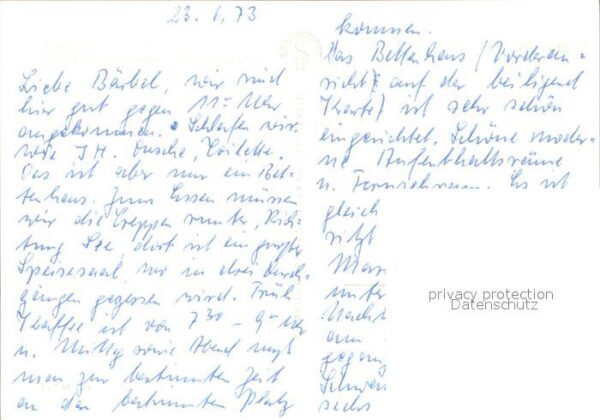 23. 1. 73
Liebe Bärbel, wir sind
hier gut gegen 11 Uhr
angekommen. Schlafen wir
wie JH. Dusche, Toilette.
Das ist aber nur ein Bet-
tenhaus. Zum Essen müssen
wir die Treppen runter, Rich-
tung See, dort ist ein großer
Speisesaal, wo in drei Durch-
gängen gegessen wird. Früh
Kaffee ist von 7³⁰ - 9 Uhr
u. Mittag sowie Abend muß
man zur bestimmten Zeit
an den bestimmten Platz
kommen.
Das Bettenhaus (Vorderan-
sicht auf der beiligend
Karte) ist sehr schön
eingerichtet. Schöne moder-
ne Aufenthaltsräume
u. Fernsehraum. Es ist
gleich
sitzt
Man
unter
Nacht
am
gegang
Schwes
sechs
privacy protection
Datenschutz